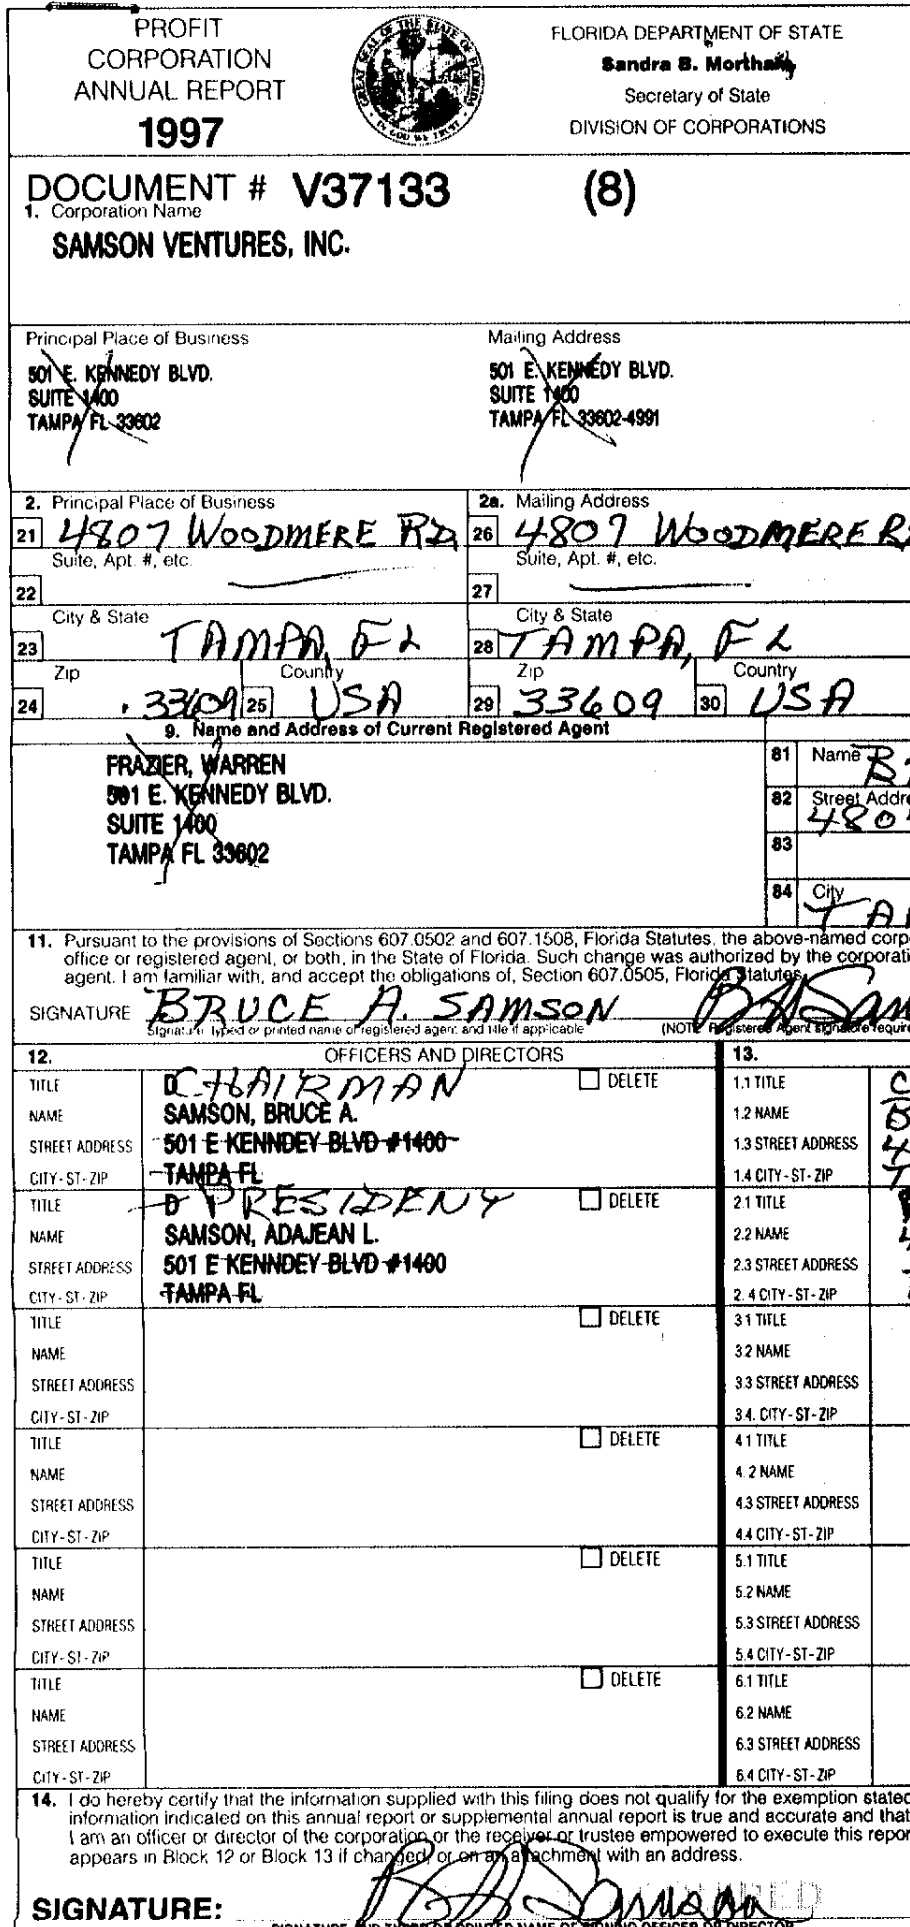 PROFIT
CORPORATION
ANNUAL REPORT
1997
GREAT SEAL OF THE STATE OF FLORIDA
IN GOD WE TRUST
FLORIDA DEPARTMENT OF STATE
Sandra B. Mortham
Secretary of State
DIVISION OF CORPORATIONS
DOCUMENT # V37133 (8)
1. Corporation Name
SAMSON VENTURES, INC.
Principal Place of Business
501 E. KENNEDY BLVD.
SUITE 1400
TAMPA FL 33602
Mailing Address
501 E. KENNEDY BLVD.
SUITE 1400
TAMPA FL 33602-4991
2. Principal Place of Business
21 4807 WOODMERE RD
Suite, Apt. #, etc.
22
City & State
23 TAMPA, FL
Zip Country
24 33609 25 USA
2a. Mailing Address
26 4807 WOODMERE R
Suite, Apt. #, etc.
27
City & State
28 TAMPA, FL
Zip Country
29 33609 30 USA
9. Name and Address of Current Registered Agent
FRAZIER, WARREN
501 E. KENNEDY BLVD.
SUITE 1400
TAMPA FL 33602
81 Name B
82 Street Addre
480
83
84 City
TA
11. Pursuant to the provisions of Sections 607.0502 and 607.1508, Florida Statutes, the above-named corp
office or registered agent, or both, in the State of Florida. Such change was authorized by the corporati
agent. I am familiar with, and accept the obligations of, Section 607.0505, Florida Statutes.
SIGNATURE BRUCE A. SAMSON
Signature, typed or printed name of registered agent and title if applicable (NOTE Registered Agent signature require
12. OFFICERS AND DIRECTORS 13.
TITLE D CHAIRMAN DELETE 1.1 TITLE C
NAME SAMSON, BRUCE A. 1.2 NAME B
STREET ADDRESS 501 E KENNDEY BLVD #1400 1.3 STREET ADDRESS 4
CITY-ST-ZIP TAMPA FL 1.4 CITY-ST-ZIP T
TITLE D PRESIDENY DELETE 2.1 TITLE
NAME SAMSON, ADAJEAN L. 2.2 NAME
STREET ADDRESS 501 E KENNDEY BLVD #1400 2.3 STREET ADDRESS
CITY-ST-ZIP TAMPA FL 2.4 CITY-ST-ZIP
TITLE DELETE 3.1 TITLE
NAME 3.2 NAME
STREET ADDRESS 3.3 STREET ADDRESS
CITY-ST-ZIP 3.4. CITY-ST-ZIP
TITLE DELETE 4.1 TITLE
NAME 4.2 NAME
STREET ADDRESS 4.3 STREET ADDRESS
CITY-ST-ZIP 4.4 CITY-ST-ZIP
TITLE DELETE 5.1 TITLE
NAME 5.2 NAME
STREET ADDRESS 5.3 STREET ADDRESS
CITY-ST-ZIP 5.4 CITY-ST-ZIP
TITLE DELETE 6.1 TITLE
NAME 6.2 NAME
STREET ADDRESS 6.3 STREET ADDRESS
CITY-ST-ZIP 6.4 CITY-ST-ZIP
14. I do hereby certify that the information supplied with this filing does not qualify for the exemption stated
information indicated on this annual report or supplemental annual report is true and accurate and that
I am an officer or director of the corporation or the receiver or trustee empowered to execute this repor
appears in Block 12 or Block 13 if changed, or on an attachment with an address.
SIGNATURE:
SIGNATURE AND TYPED OR PRINTED NAME OF SIGNING OFFICER OR DIRECTOR